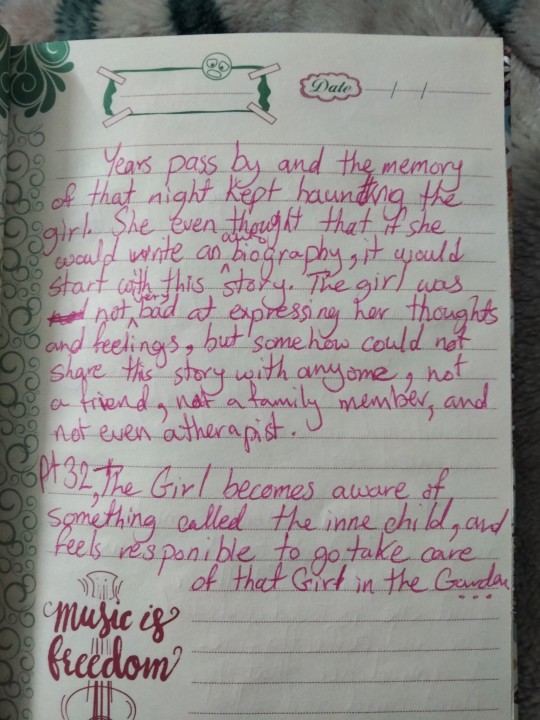 Date / /
Years pass by and the memory
of that night kept haunting the
girl. She even thought that if she
would write an auto biography, it would
start with this story. The girl was
not very bad at expressing her thoughts
and feelings, but somehow could not
share this story with anyone, not
a friend, not a family member, and
not even a therapist.
At 32, The Girl becomes aware of
something called the inne child, and
feels responible to go take care
of that Girl in the Garden
...
Music is
freedom